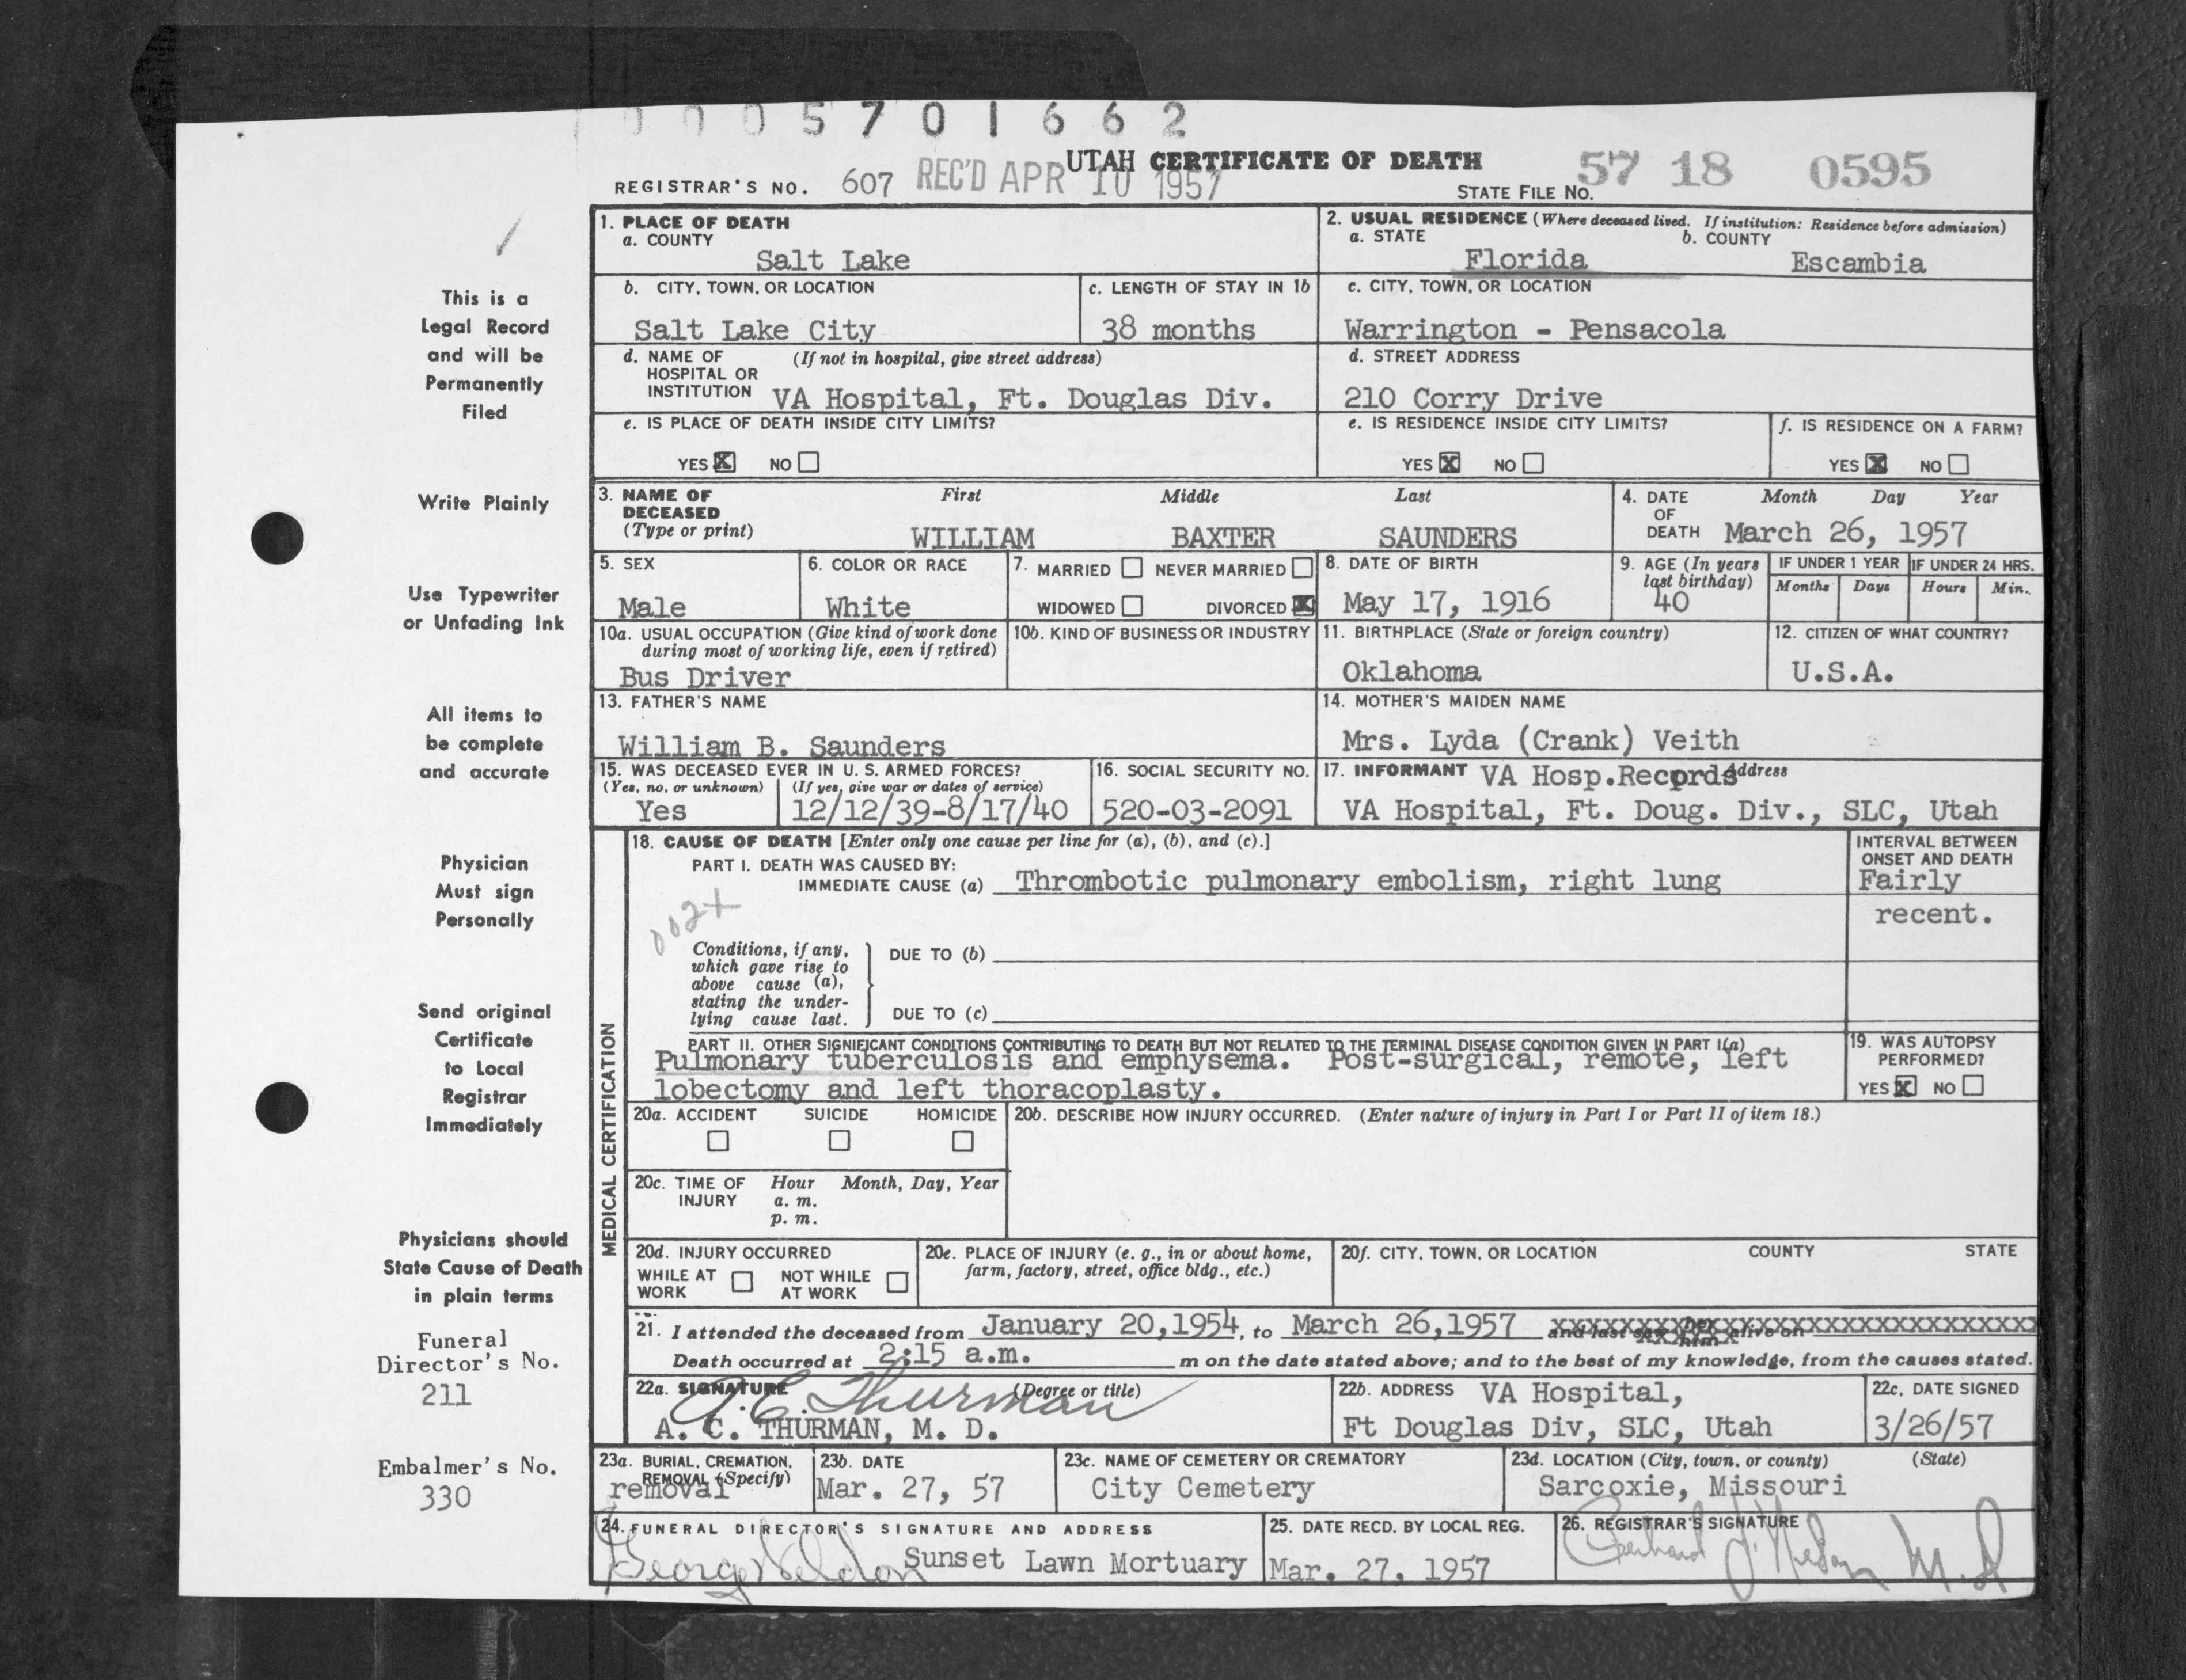 0005701662
UTAH CERTIFICATE OF DEATH
REGISTRAR'S NO. 607 REC'D APR 10 1957 STATE FILE NO. 57 18 0595
This is a
Legal Record
and will be
Permanently
Filed
Write Plainly
Use Typewriter
or Unfading Ink
All items to
be complete
and accurate
Physician
Must sign
Personally
Send original
Certificate
to Local
Registrar
Immediately
Physicians should
State Cause of Death
in plain terms
Funeral
Director's No.
211
Embalmer's No.
330
1. PLACE OF DEATH
a. COUNTY
Salt Lake
2. USUAL RESIDENCE (Where deceased lived. If institution: Residence before admission)
a. STATE b. COUNTY
Florida Escambia
b. CITY, TOWN, OR LOCATION
Salt Lake City
c. LENGTH OF STAY IN 1b
38 months
c. CITY, TOWN, OR LOCATION
Warrington - Pensacola
d. NAME OF (If not in hospital, give street address)
HOSPITAL OR
INSTITUTION VA Hospital, Ft. Douglas Div.
d. STREET ADDRESS
210 Corry Drive
e. IS PLACE OF DEATH INSIDE CITY LIMITS?
YES X NO
e. IS RESIDENCE INSIDE CITY LIMITS?
YES X NO
f. IS RESIDENCE ON A FARM?
YES X NO
3. NAME OF
DECEASED
(Type or print)
First Middle Last
WILLIAM BAXTER SAUNDERS
4. DATE
OF
DEATH
Month Day Year
March 26, 1957
5. SEX
Male
6. COLOR OR RACE
White
7. MARRIED NEVER MARRIED
WIDOWED DIVORCED X
8. DATE OF BIRTH
May 17, 1916
9. AGE (In years
last birthday)
40
IF UNDER 1 YEAR
Months Days
IF UNDER 24 HRS.
Hours Min.
10a. USUAL OCCUPATION (Give kind of work done
during most of working life, even if retired)
Bus Driver
10b. KIND OF BUSINESS OR INDUSTRY
11. BIRTHPLACE (State or foreign country)
Oklahoma
12. CITIZEN OF WHAT COUNTRY?
U.S.A.
13. FATHER'S NAME
William B. Saunders
14. MOTHER'S MAIDEN NAME
Mrs. Lyda (Crank) Veith
15. WAS DECEASED EVER IN U. S. ARMED FORCES?
(Yes, no, or unknown) (If yes, give war or dates of service)
Yes 12/12/39-8/17/40
16. SOCIAL SECURITY NO.
520-03-2091
17. INFORMANT VA Hosp.Records Address
VA Hospital, Ft. Doug. Div., SLC, Utah
MEDICAL CERTIFICATION
18. CAUSE OF DEATH [Enter only one cause per line for (a), (b), and (c).]
PART I. DEATH WAS CAUSED BY:
IMMEDIATE CAUSE (a) Thrombotic pulmonary embolism, right lung
INTERVAL BETWEEN
ONSET AND DEATH
Fairly
recent.
002+
Conditions, if any,
which gave rise to
above cause (a),
stating the under-
lying cause last.
DUE TO (b)
DUE TO (c)
PART II. OTHER SIGNIFICANT CONDITIONS CONTRIBUTING TO DEATH BUT NOT RELATED TO THE TERMINAL DISEASE CONDITION GIVEN IN PART I(a)
Pulmonary tuberculosis and emphysema. Post-surgical, remote, left
lobectomy and left thoracoplasty.
19. WAS AUTOPSY
PERFORMED?
YES X NO
20a. ACCIDENT SUICIDE HOMICIDE
20b. DESCRIBE HOW INJURY OCCURRED. (Enter nature of injury in Part I or Part II of item 18.)
20c. TIME OF Hour Month, Day, Year
INJURY a. m.
p. m.
20d. INJURY OCCURRED
WHILE AT NOT WHILE
WORK AT WORK
20e. PLACE OF INJURY (e. g., in or about home,
farm, factory, street, office bldg., etc.)
20f. CITY, TOWN, OR LOCATION COUNTY STATE
21. I attended the deceased from January 20,1954, to March 26,1957 and last saw her him alive on
Death occurred at 2:15 a.m. m on the date stated above; and to the best of my knowledge, from the causes stated.
22a. SIGNATURE (Degree or title)
A. C. Thurman
A. C. THURMAN, M. D.
22b. ADDRESS VA Hospital,
Ft Douglas Div, SLC, Utah
22c. DATE SIGNED
3/26/57
23a. BURIAL, CREMATION,
REMOVAL (Specify)
removal
23b. DATE
Mar. 27, 57
23c. NAME OF CEMETERY OR CREMATORY
City Cemetery
23d. LOCATION (City, town, or county) (State)
Sarcoxie, Missouri
24. FUNERAL DIRECTOR'S SIGNATURE AND ADDRESS
Sunset Lawn Mortuary
25. DATE RECD. BY LOCAL REG.
Mar. 27, 1957
26. REGISTRAR'S SIGNATURE
M.D